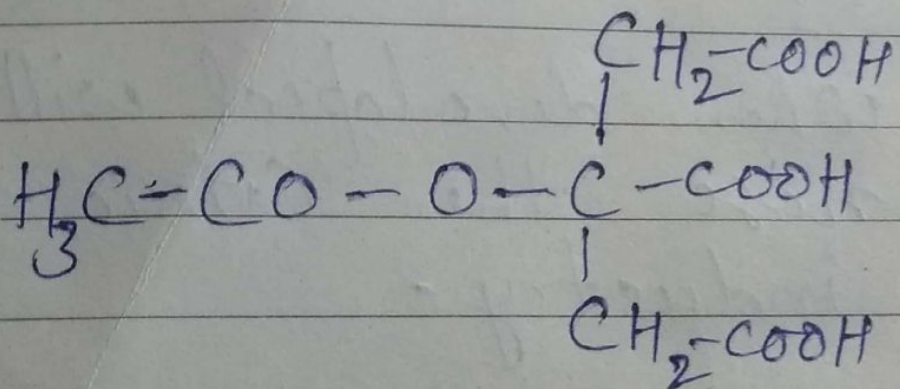 CH2-COOH
|
H3C-CO-O-C-COOH
|
CH2-COOH